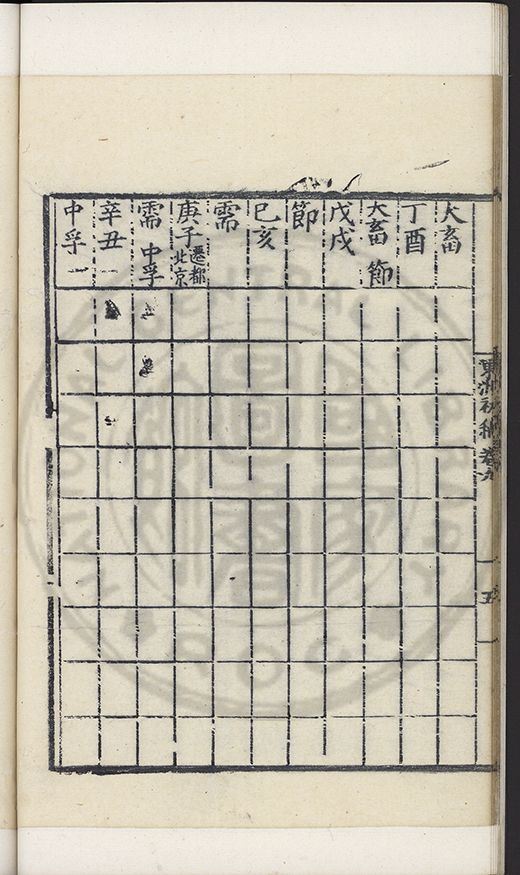 大畜
丁酉
大畜 節
戊戌
節
己亥
需
庚子 遷都北京
需 中孚
辛丑
中孚
卷九
五